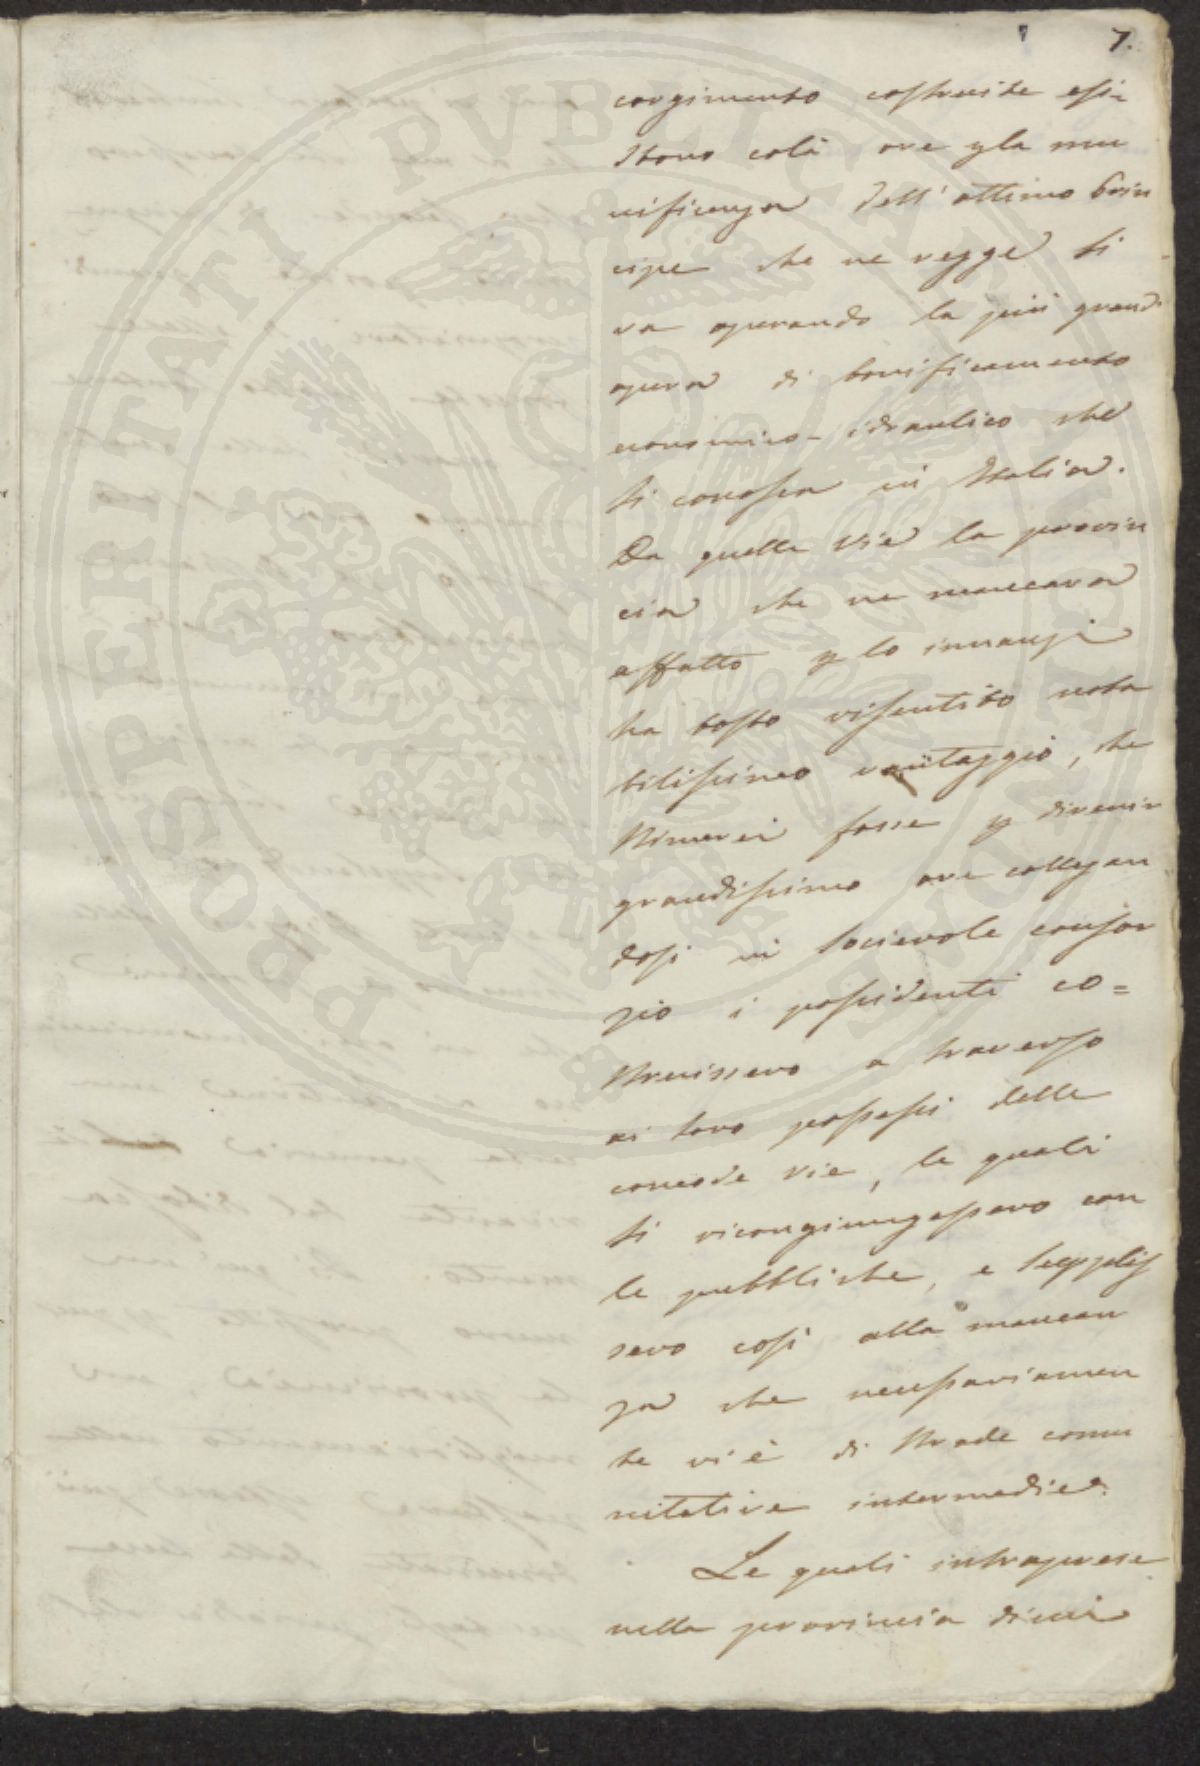 7.
corgimento costruite esi-
stono colà ove p la mu
nificenza dell' ottimo Prin
cipe che ne regge si
va operando la più grand
opera di bonificamento
economico-idraulico che
si conosca in Italia.
Da quelle vie la provin
cia che ne mancava
affatto p lo innanzi
ha tosto risentito nota
bilissimo vantaggio, che
stimerei fosse p divenir
grandissimo ove collegan
dosi in socievole consor
zio i possidenti co=
struissero a traverso
ai loro possessi delle
comode vie, le quali
si ricongiungessero con
le pubbliche, e supplis
sero così alla mancan
za che necessariamen
te vi è di strade comu
nitative intermedie.
Le quali intraprese
nella provincia di cui
PROSPERITATI PVBLICAE